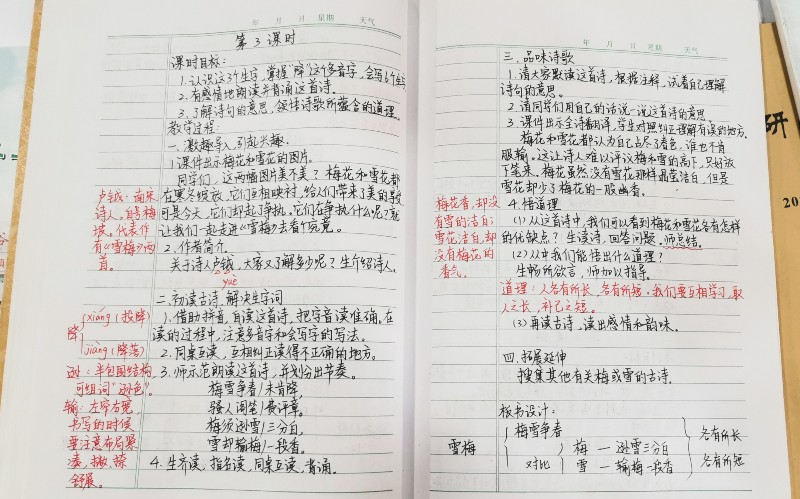 年 月 日 星期 天气
第3课时
课时目标:
1.认识这3个生字,掌握"降"这个多音字,会写6个生字
2.有感情地朗读并背诵这首诗。
3.了解诗句的意思,领悟诗歌所蕴含的道理。
教学过程:
一.激趣导入,引起兴趣.
1.课件出示梅花和雪花的图片。
同学们,这两幅图片美不美?梅花和雪花都
在寒冬绽放,它们互相映衬,给人们带来了美的享受
可是今天,它们却起了争执。它们在争执什么呢?就
让我们一起走进《雪梅》去看个究竟。
2.作者简介.
关于诗人卢钺,大家又了解多少呢?生介绍诗人.
yuè
卢钺:南宋
诗人,自号梅
坡,代表作
有《雪梅》两
首。
二.初读古诗,解决生字词
1.借助拼音,自读这首诗,把字音读准确,在
读的过程中,注意多音字和会写字的写法。
2.同桌互读,互相纠正读得不正确的地方。
3.师示范朗读这首诗,并划分出节奏。
梅雪争春/未肯降,
骚人阁笔/费评章。
梅须逊雪/三分白,
雪却输梅/一段香。
4.生齐读,指名读,同桌互读,背诵。
降
xiáng(投降)
jiàng(降落)
逊:半包围结构
可组词"逊色"。
输:左窄右宽,
书写的时候
要注意布局紧
凑,撇、捺
舒展。
年 月 日 星期 天气
三.品味诗歌
1.请大家默读这首诗,根据注释,试着自己理解
诗句的意思。
2.请同学们用自己的话说一说这首诗的意思.
3.课件出示全诗翻译,学生对照纠正理解有误的地方.
梅花和雪花都认为自己占尽了春色,谁也不肯
服输。这让诗人难以评议梅和雪的高下,只好放
下笔来。梅花虽然没有雪花那样晶莹洁白,但是
雪花却少了梅花的一股幽香。
梅花香,却没
有雪的洁白;
雪花洁白,却
没有梅花的
香气。
4.悟道理
(1)从这首诗中,我们可以看到梅花和雪花各有怎样
的优缺点?生读诗,回答问题.师总结.
(2)从中我们能悟出什么道理?
生畅所欲言,师加以指导.
道理:人各有所长,各有所短,我们要互相学习,取
人之长,补己之短。
(3)再读古诗,读出感情和韵味。
四.拓展延伸
搜集其他有关梅或雪的古诗.
板书设计:
雪梅
梅雪争春
对比
梅—逊雪三分白
雪—输梅一段香
各有所长
各有所短
研
20